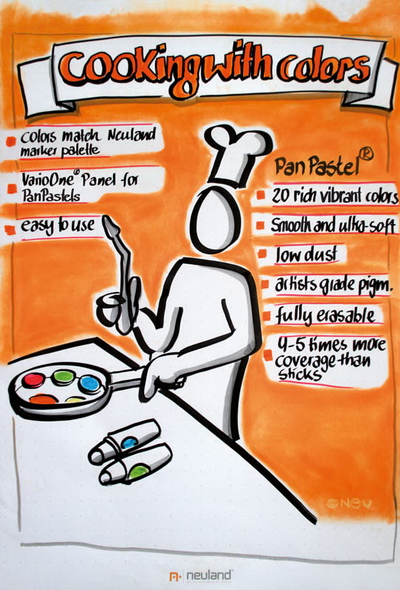 cooking with colors
colors match Neuland
marker palette
VarioOne® Panel for
PanPastels
easy to use
PanPastel®
20 rich vibrant colors
Smooth and ultra-soft
low dust
artists grade pigm.
fully erasable
4-5 times more
coverage than
sticks
neuland